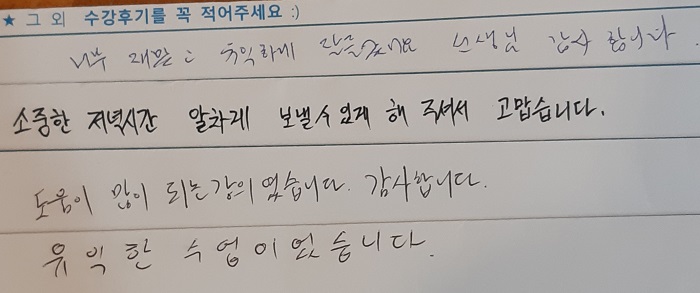 ★ 그 외 수강후기를 꼭 적어주세요 :)
너무 재밌고 유익하게 잘들었어요 선생님 감사합니다.
소중한 저녁시간 알차게 보낼 수 있게 해 주셔서 고맙습니다.
도움이 많이 되는 강의였습니다. 감사합니다.
유익한 수업이었습니다.